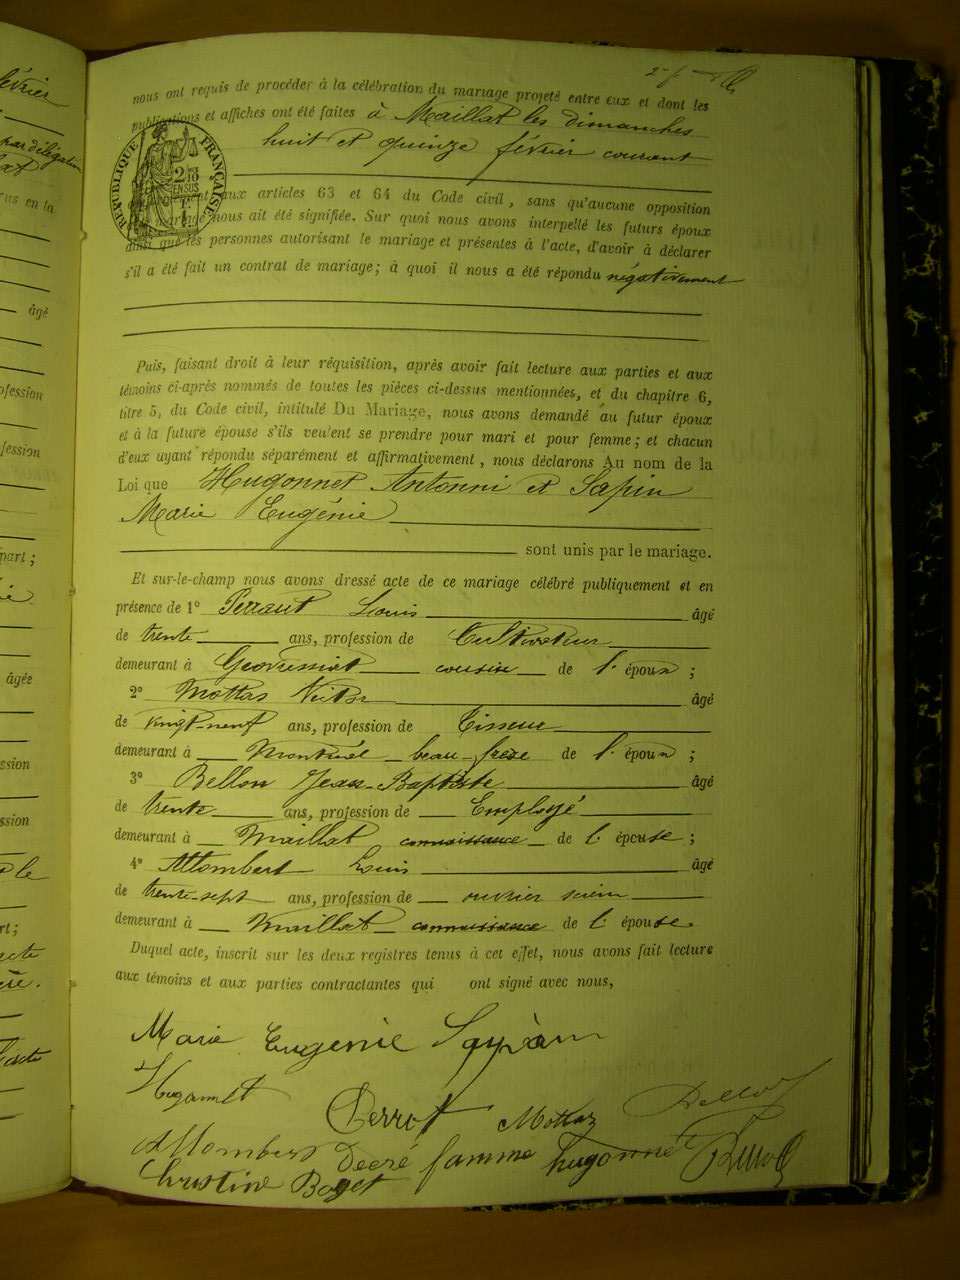 nous ont requis de procéder à la célébration du mariage projeté entre eux et dont les
publications et affiches ont été faites à Maillat les dimanches
huit et quinze février courant
RÉPUBLIQUE FRANÇAISE
aux articles 63 et 64 du Code civil, sans qu'aucune opposition
mariage nous ait été signifiée. Sur quoi nous avons interpellé les futurs époux
ainsi que les personnes autorisant le mariage et présentes à l'acte, d'avoir à déclarer
s'il a été fait un contrat de mariage; à quoi il nous a été répondu négativement
Puis, faisant droit à leur réquisition, après avoir fait lecture aux parties et aux
témoins ci-après nommés de toutes les pièces ci-dessus mentionnées, et du chapitre 6,
titre 5, du Code civil, intitulé Du Mariage, nous avons demandé au futur époux
et à la future épouse s'ils veulent se prendre pour mari et pour femme; et chacun
d'eux ayant répondu séparément et affirmativement, nous déclarons Au nom de la
Loi que Hugonnet Antonni et Sapin
Marie Eugénie
sont unis par le mariage.
Et sur-le-champ nous avons dressé acte de ce mariage célébré publiquement et en
présence de 1° Perraut Louis âgé
de trente ans, profession de Cultivateur
demeurant à Geovreissiat cousin de l'époux;
2° Mottas Victor âgé
de vingt-neuf ans, profession de Tisseur
demeurant à Montréal beau-frère de l'époux;
3° Bellon Jean-Baptiste âgé
de trente ans, profession de Employé
demeurant à Maillat connaissance de l'épouse;
4° Allombert Louis âgé
de trente-sept ans, profession de ouvrier
demeurant à Maillat connaissance de l'épouse
Duquel acte, inscrit sur les deux registres tenus à cet effet, nous avons fait lecture
aux témoins et aux parties contractantes qui ont signé avec nous,
Marie Eugénie
Hugonnet Perrot Mottaz
Allombert Decré famme hugonnet
Christine